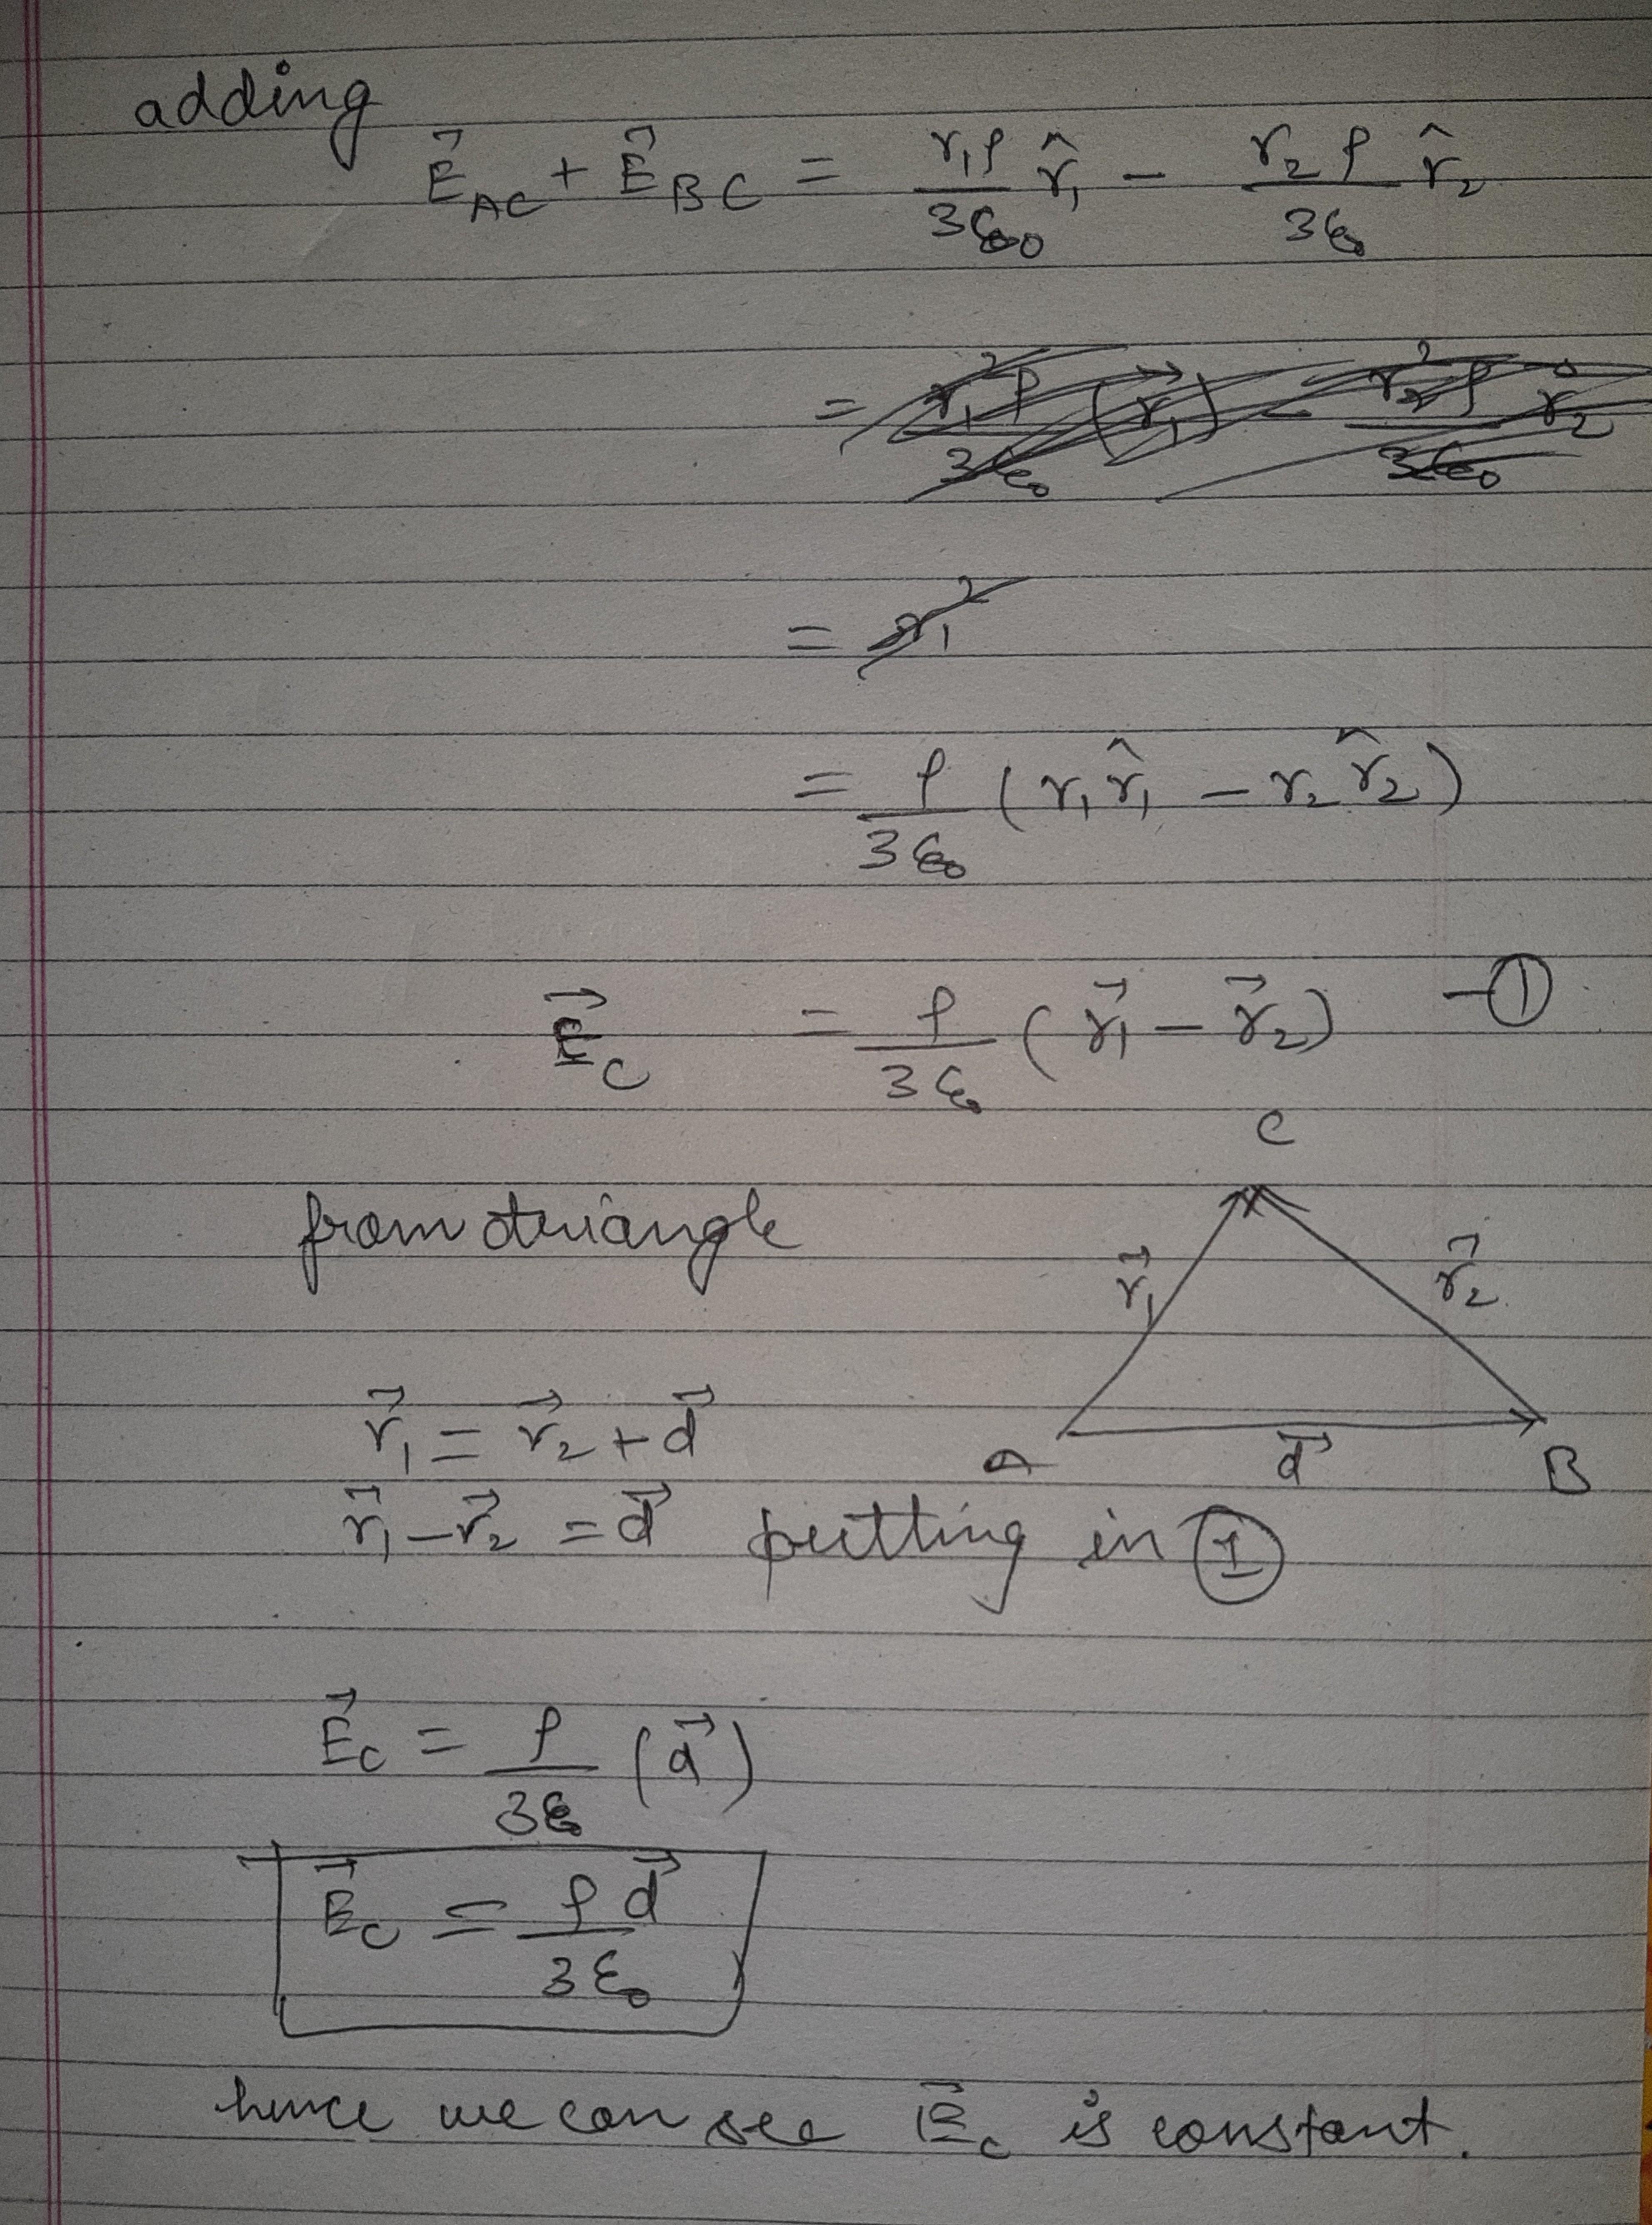 adding
E⃗_AC + E⃗_BC = r₁ρ/3ε₀ r̂₁ − r₂ρ/3ε₀ r̂₂
= r₁²ρ/3ε₀ (r⃗₁) − r₂²ρ/3ε₀ r⃗₂
= r₁²
= ρ/3ε₀ (r₁r̂₁ − r₂r̂₂)
E⃗_C = ρ/3ε₀ (r⃗₁ − r⃗₂) —①
C
from triangle
r⃗₁ r⃗₂
r⃗₁ = r⃗₂ + d⃗
A d⃗ B
r⃗₁ − r⃗₂ = d⃗ putting in ①
E⃗_C = ρ/3ε₀ (d⃗)
E⃗_C = ρd⃗/3ε₀
hence we can see E⃗_C is constant.